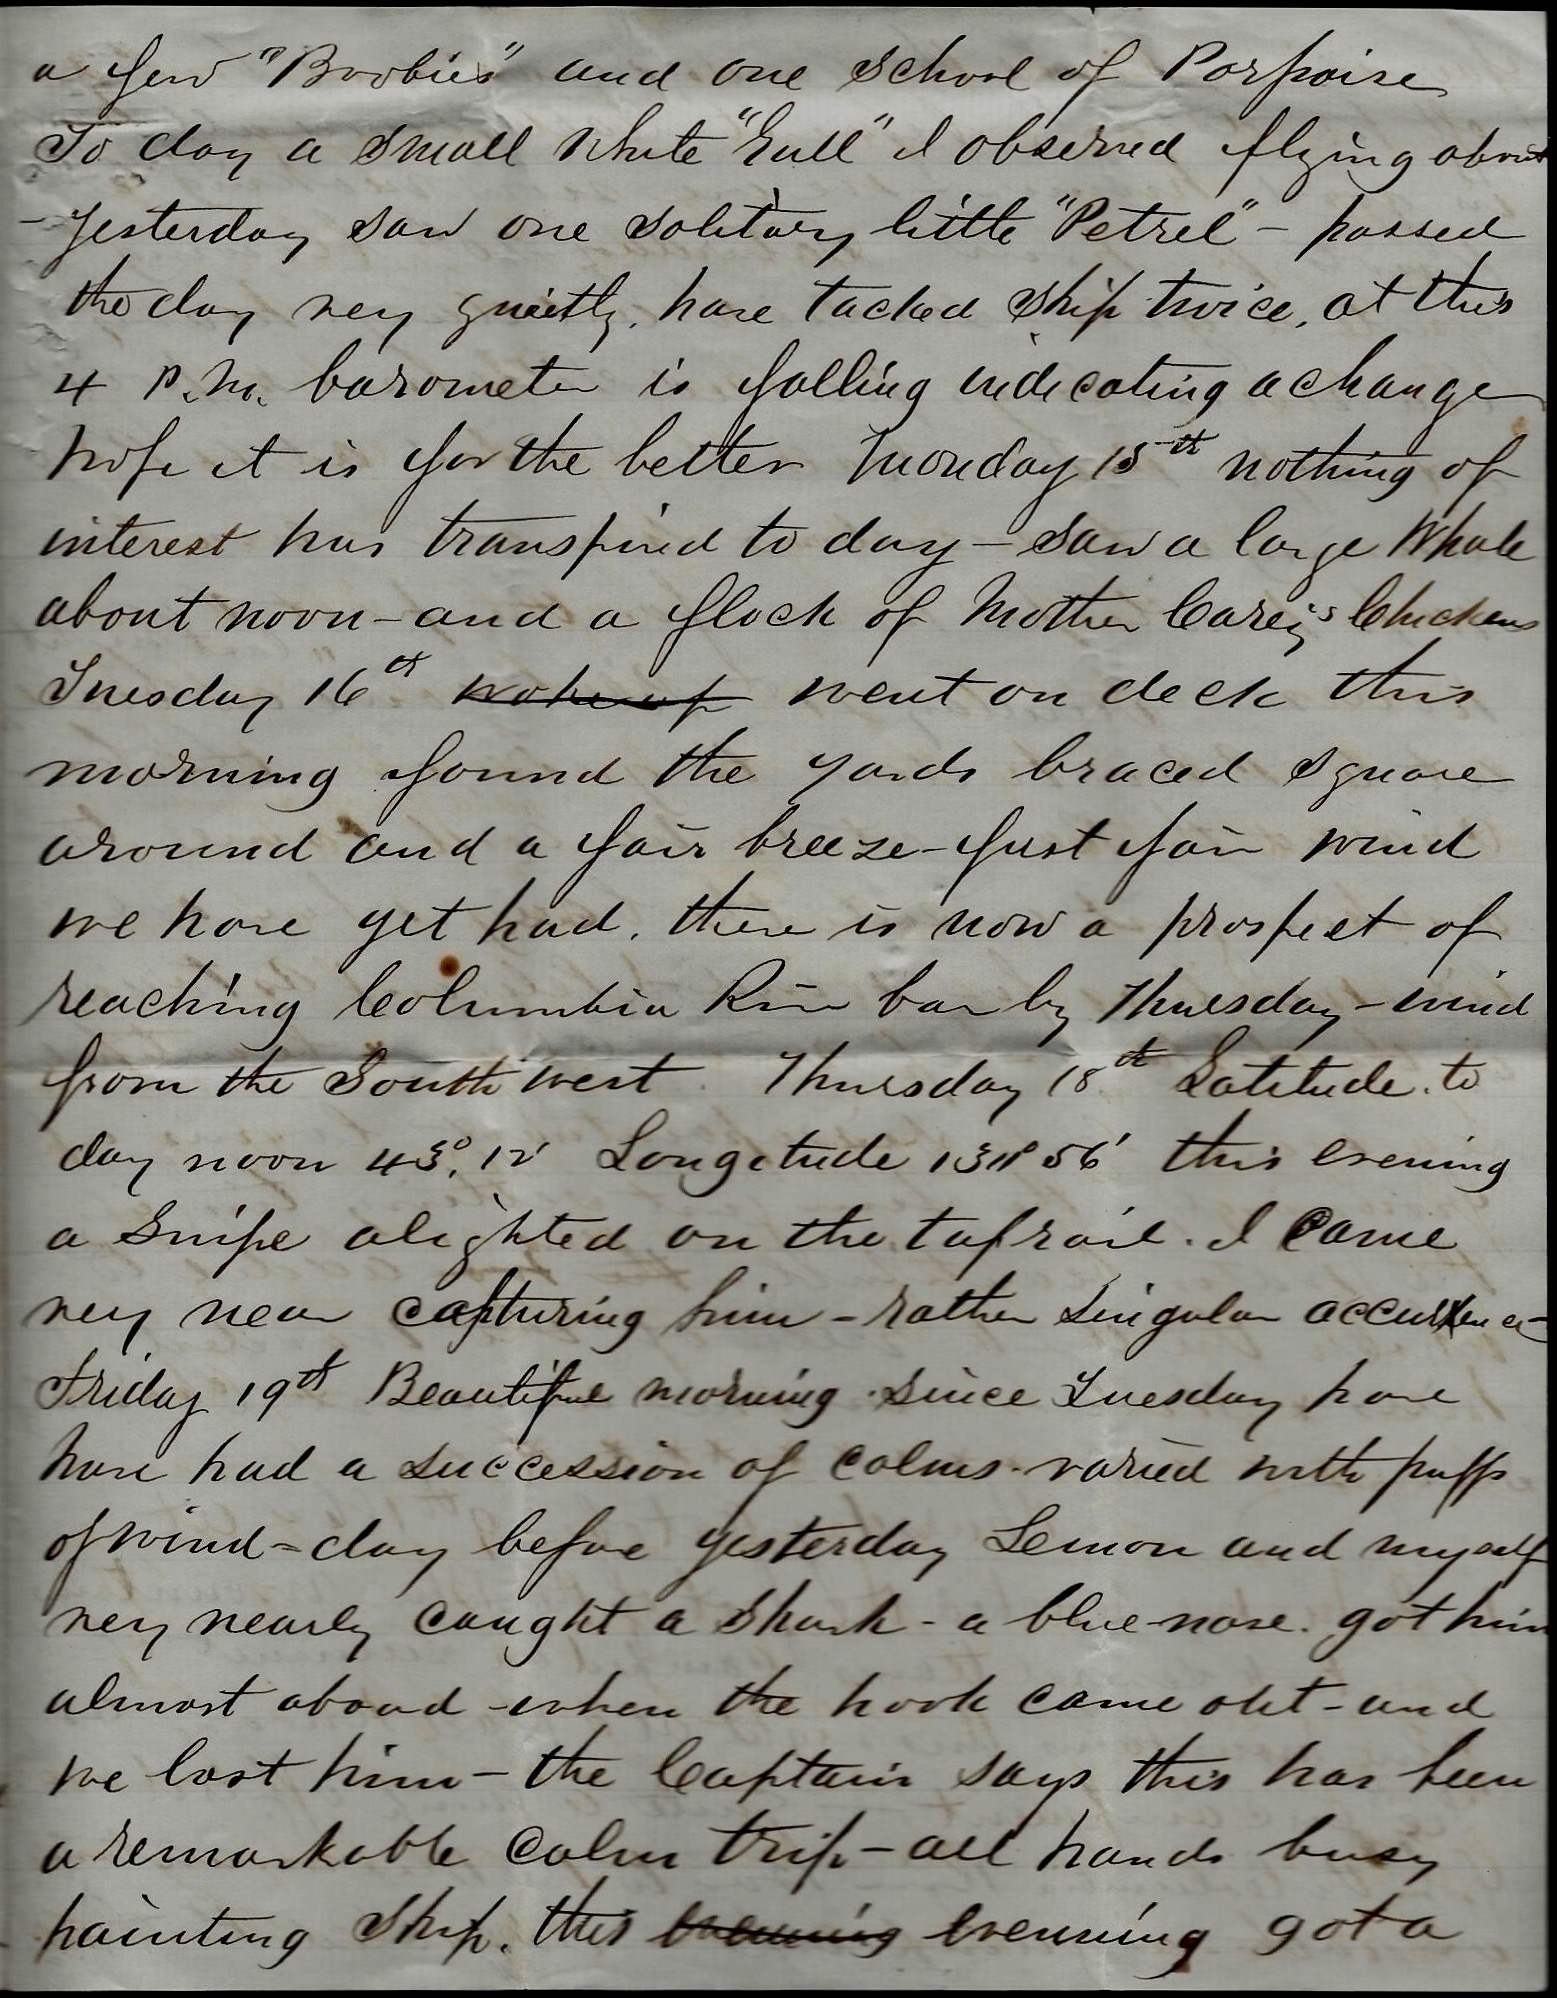 a few "Boobies" and one school of Porpoise
To day a small white "Gull" I observed flying about
- yesterday saw one solitary little "Petrel" - passed
the day very quietly, have tacked ship twice, at this
4 P.M. barometer is falling indicating a change
hope it is for the better Monday 15th nothing of
interest has transpired to day - saw a large Whale
about noon - and a flock of Mother Carey's Chickens
Tuesday 16th woke up went on deck this
morning found the yards braced square
around and a fair breeze - fust fair wind
we have yet had. there is now a prospect of
reaching Columbia River bar by Thursday - wind
from the South west. Thursday 18th Latitude to
day noon 43°. 12' Longetude 131° 56' this evening
a snipe alighted on the tafrail. I came
very near capturing him - rather singular occurrence -
Friday 19th Beautiful morning. since Tuesday have
have had a succession of calms. varied with puffs
of wind - day before yesterday Lemon and myself
very nearly caught a shark - a blue-nose. got him
almost aboard - when the hook came out - and
we lost him - the Captain says this has been
a remarkable calm trip - all hands busy
painting ship. this evening evenning got a